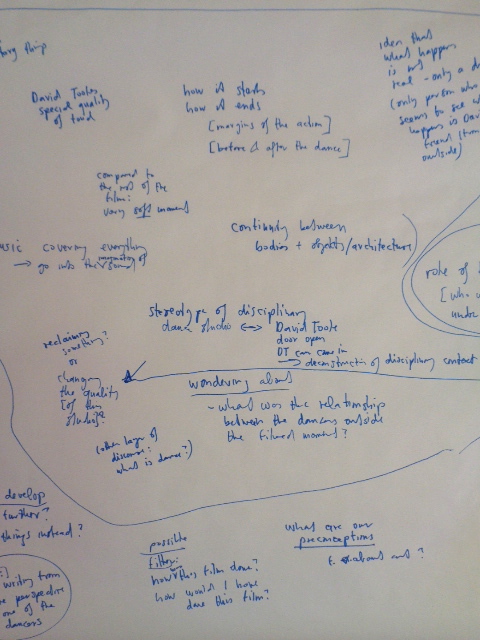 David Toole
special quality
of
how it starts
how it ends
[margins of the action]
[before & after the dance]
idea that
what happens
is not
real - only a
(only person who
seems to see
happens is
outside)
compared to
the rest of the
film:
very soft moment
continuity between
bodies + objects/architecture
covering everything
→ go into the
role of
[who
stereotype of disciplinary
dance studio ↔ David Toole
door open
DT can come in
→ deconstruction of disciplinary context
reclaiming
something?
or
changing
the quality
[of this
studio?
wondering about
- what was the relationship
between the dancers outside
the filmed moment?
(other layer of
discourse:
what is dance?)
develop
further?
things instead?
writing from
perspective
one of the
dancers
possible
filter:
how this film done?
how would I have
done this film?
what are our
preconceptions
about